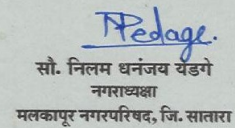 NPedage.
सौ. निलम धनंजय येडगे
नगराध्यक्षा
मलकापूर नगरपरिषद, जि. सातारा